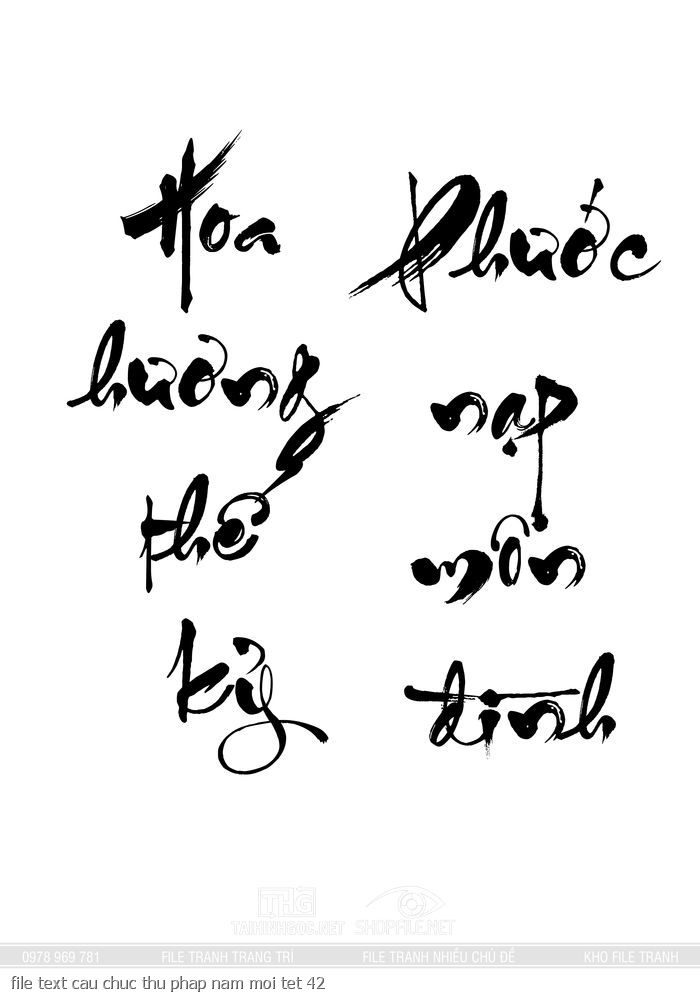 Hoa
hương
thế
kỷ
Phước
nạp
môn
đình
THG
TAIHINHGOC.NET
SHOPFILE.NET
0978 969 781
FILE TRANH TRANG TRÍ
FILE TRANH NHIỀU CHỦ ĐỀ
KHO FILE TRANH
file text cau chuc thu phap nam moi tet 42